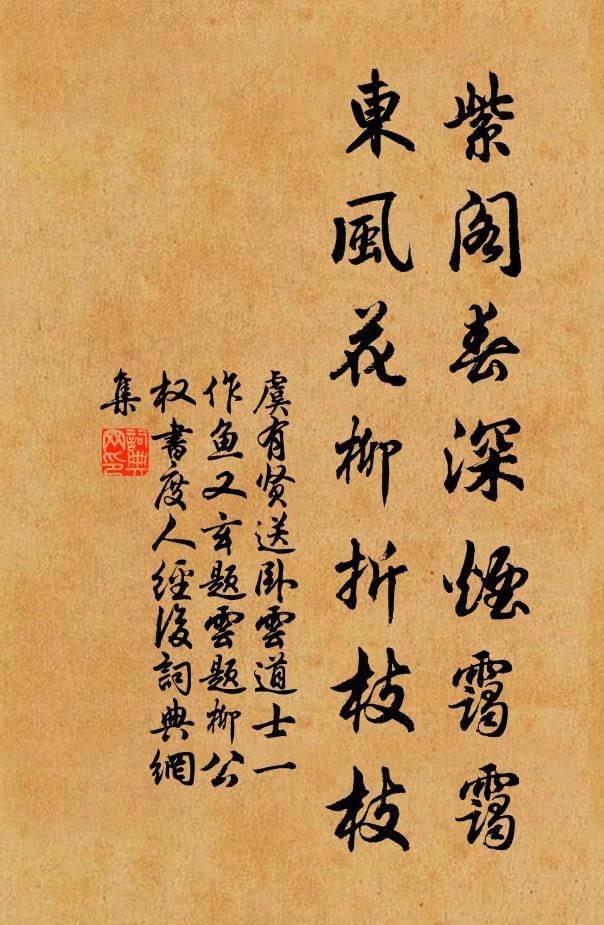 紫阁春深煙靄靄
東風花柳折枝枝
虞有贤送卧雲道士一
作鱼又玄题雲题柳公
权書度人經後詞典網
集
詞典
网印